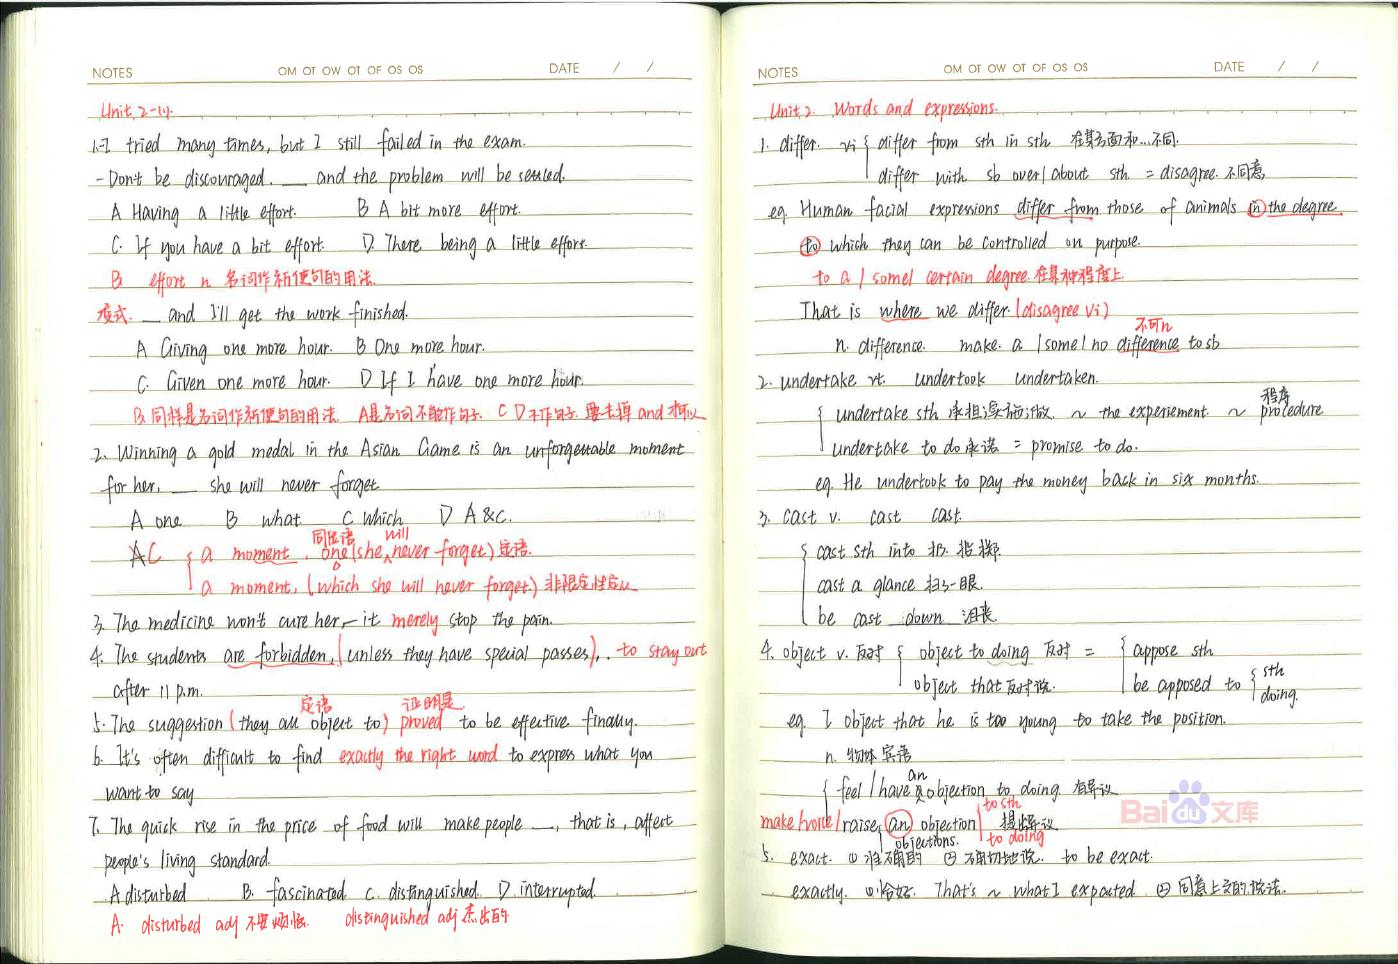 NOTES OM OT OW OT OF OS OS DATE / /
Unit 2-(1).
1.-I tried many times, but I still failed in the exam.
-Don't be discouraged. ___ and the problem will be settled.
A Having a little effort. B A bit more effort.
C. If you have a bit effort. D. There being a little effort.
B effort n 名词作祈使句的用法.
变式. __ and I'll get the work finished.
A Giving one more hour. B One more hour.
C. Given one more hour. D If I have one more hour.
B 同样是名词作祈使句的用法. A是名词不能作句子. C D 要去掉 and 才可以
2. Winning a gold medal in the Asian Game is an unforgettable moment
for her, ___ she will never forget
A one B what C which D A & C.
同位语 will
AC a moment, one (she never forget) 定语.
a moment, (which she will never forget.) 非限定性定从
3. The medicine won't cure her, — it merely stop the pain.
4. The students are forbidden, (unless they have special passes), to stay out
after 11 p.m.
定语 证明是
5. The suggestion (they all object to) proved to be effective finally.
6. It's often difficult to find exactly the right word to express what you
want to say
7. The quick rise in the price of food will make people ___, that is, affect
people's living standard.
A disturbed B. fascinated C. distinguished. D. interrupted.
A. disturbed adj 不安烦恼. distinguished adj 杰出的
NOTES OM OT OW OT OF OS OS DATE / /
Unit 2. Words and expressions.
1. differ. vi differ from sth in sth 在某方面和...不同.
differ with sb over/about sth = disagree. 不同意
eg. Human facial expressions differ from those of animals in the degree
to which they can be controlled on purpose.
to a / some / certain degree. 在某种程度上.
That is where we differ. (disagree vi)
不可n
n. difference. make a / some / no difference to sb
2. undertake vt. undertook undertaken.
程序
undertake sth 承担实施做. ~ the experiement. ~ procedure
undertake to do 承诺 = promise to do.
eg. He undertook to pay the money back in six months.
3. cast v. cast cast.
cast sth into 扔. 投掷.
cast a glance 扫一眼.
be cast down 沮丧
4. object v. 反对 object to doing 反对 = appose sth
object that 反对说. be apposed to sth
doing.
eg. I object that he is too young to take the position.
n. 物体 宾语
an
feel / have objection to doing 有异议
make/voice/raise an objection to sth 提出异议
objections. to doing
5. exact. ① 准确的 ② 确切地说. to be exact.
exactly. ① 恰好. That's ~ what I expected. ② 同意上文的说法.
Bai du 文库